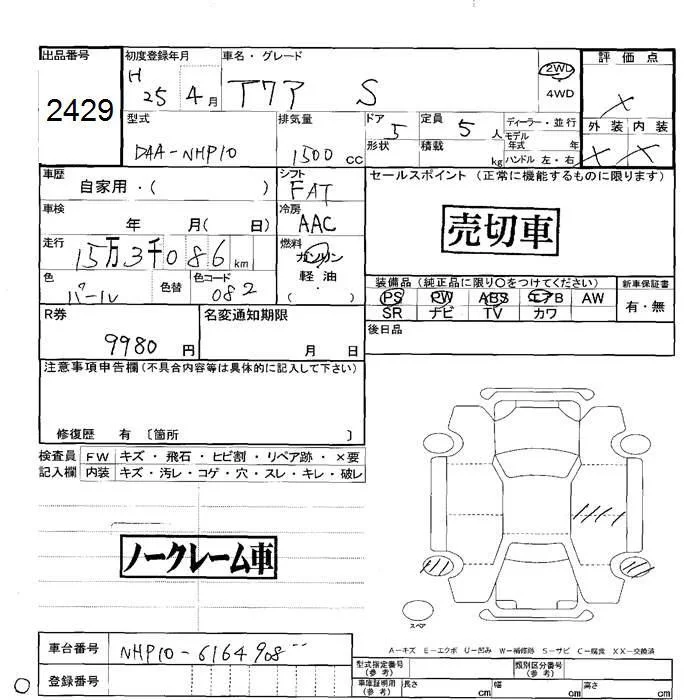 出品番号 初度登録年月 車名・グレード 評価点
2429 H 25 4月 アクア S 2WD 4WD X
型式 排気量 ドア 定員 ディーラー・並行 外装 内装
DAA-NHP10 1500 CC 5 5人 モデル年式 年 X X
形状 積載 kg ハンドル 左・右
車歴 自家用・( ) シフト FAT セールスポイント (正常に機能するものに限ります)
車検 年 月( 日) 冷房 AAC 売切車
走行 15万3千086km 燃料 ガソリン 軽油 ・( )
装備品 (純正品に限り○をつけてください) 新車保証書
色 パール 色替 色コード 082
PS PW ABS エアB AW 有・無
SR ナビ TV カワ
R券 9980円 名変通知期限 月 日 後日品
注意事項申告欄(不具合内容等は具体的に記入して下さい)
修復歴 有 〔箇所 〕
検査員 FW キズ・飛石・ヒビ割・リペア跡・×要
記入欄 内装 キズ・汚レ・コゲ・穴・スレ・キレ・破レ
ノークレーム車
スペア
A-キズ E-エクボ U-凹み W-補修跡 S-サビ C-腐食 XX-交換済
車台番号 NHP10-6164908
型式指定番号(参考) 類別区分番号(参考)
登録番号 車庫証明用(参考) 長さ cm 幅 cm 高さ cm